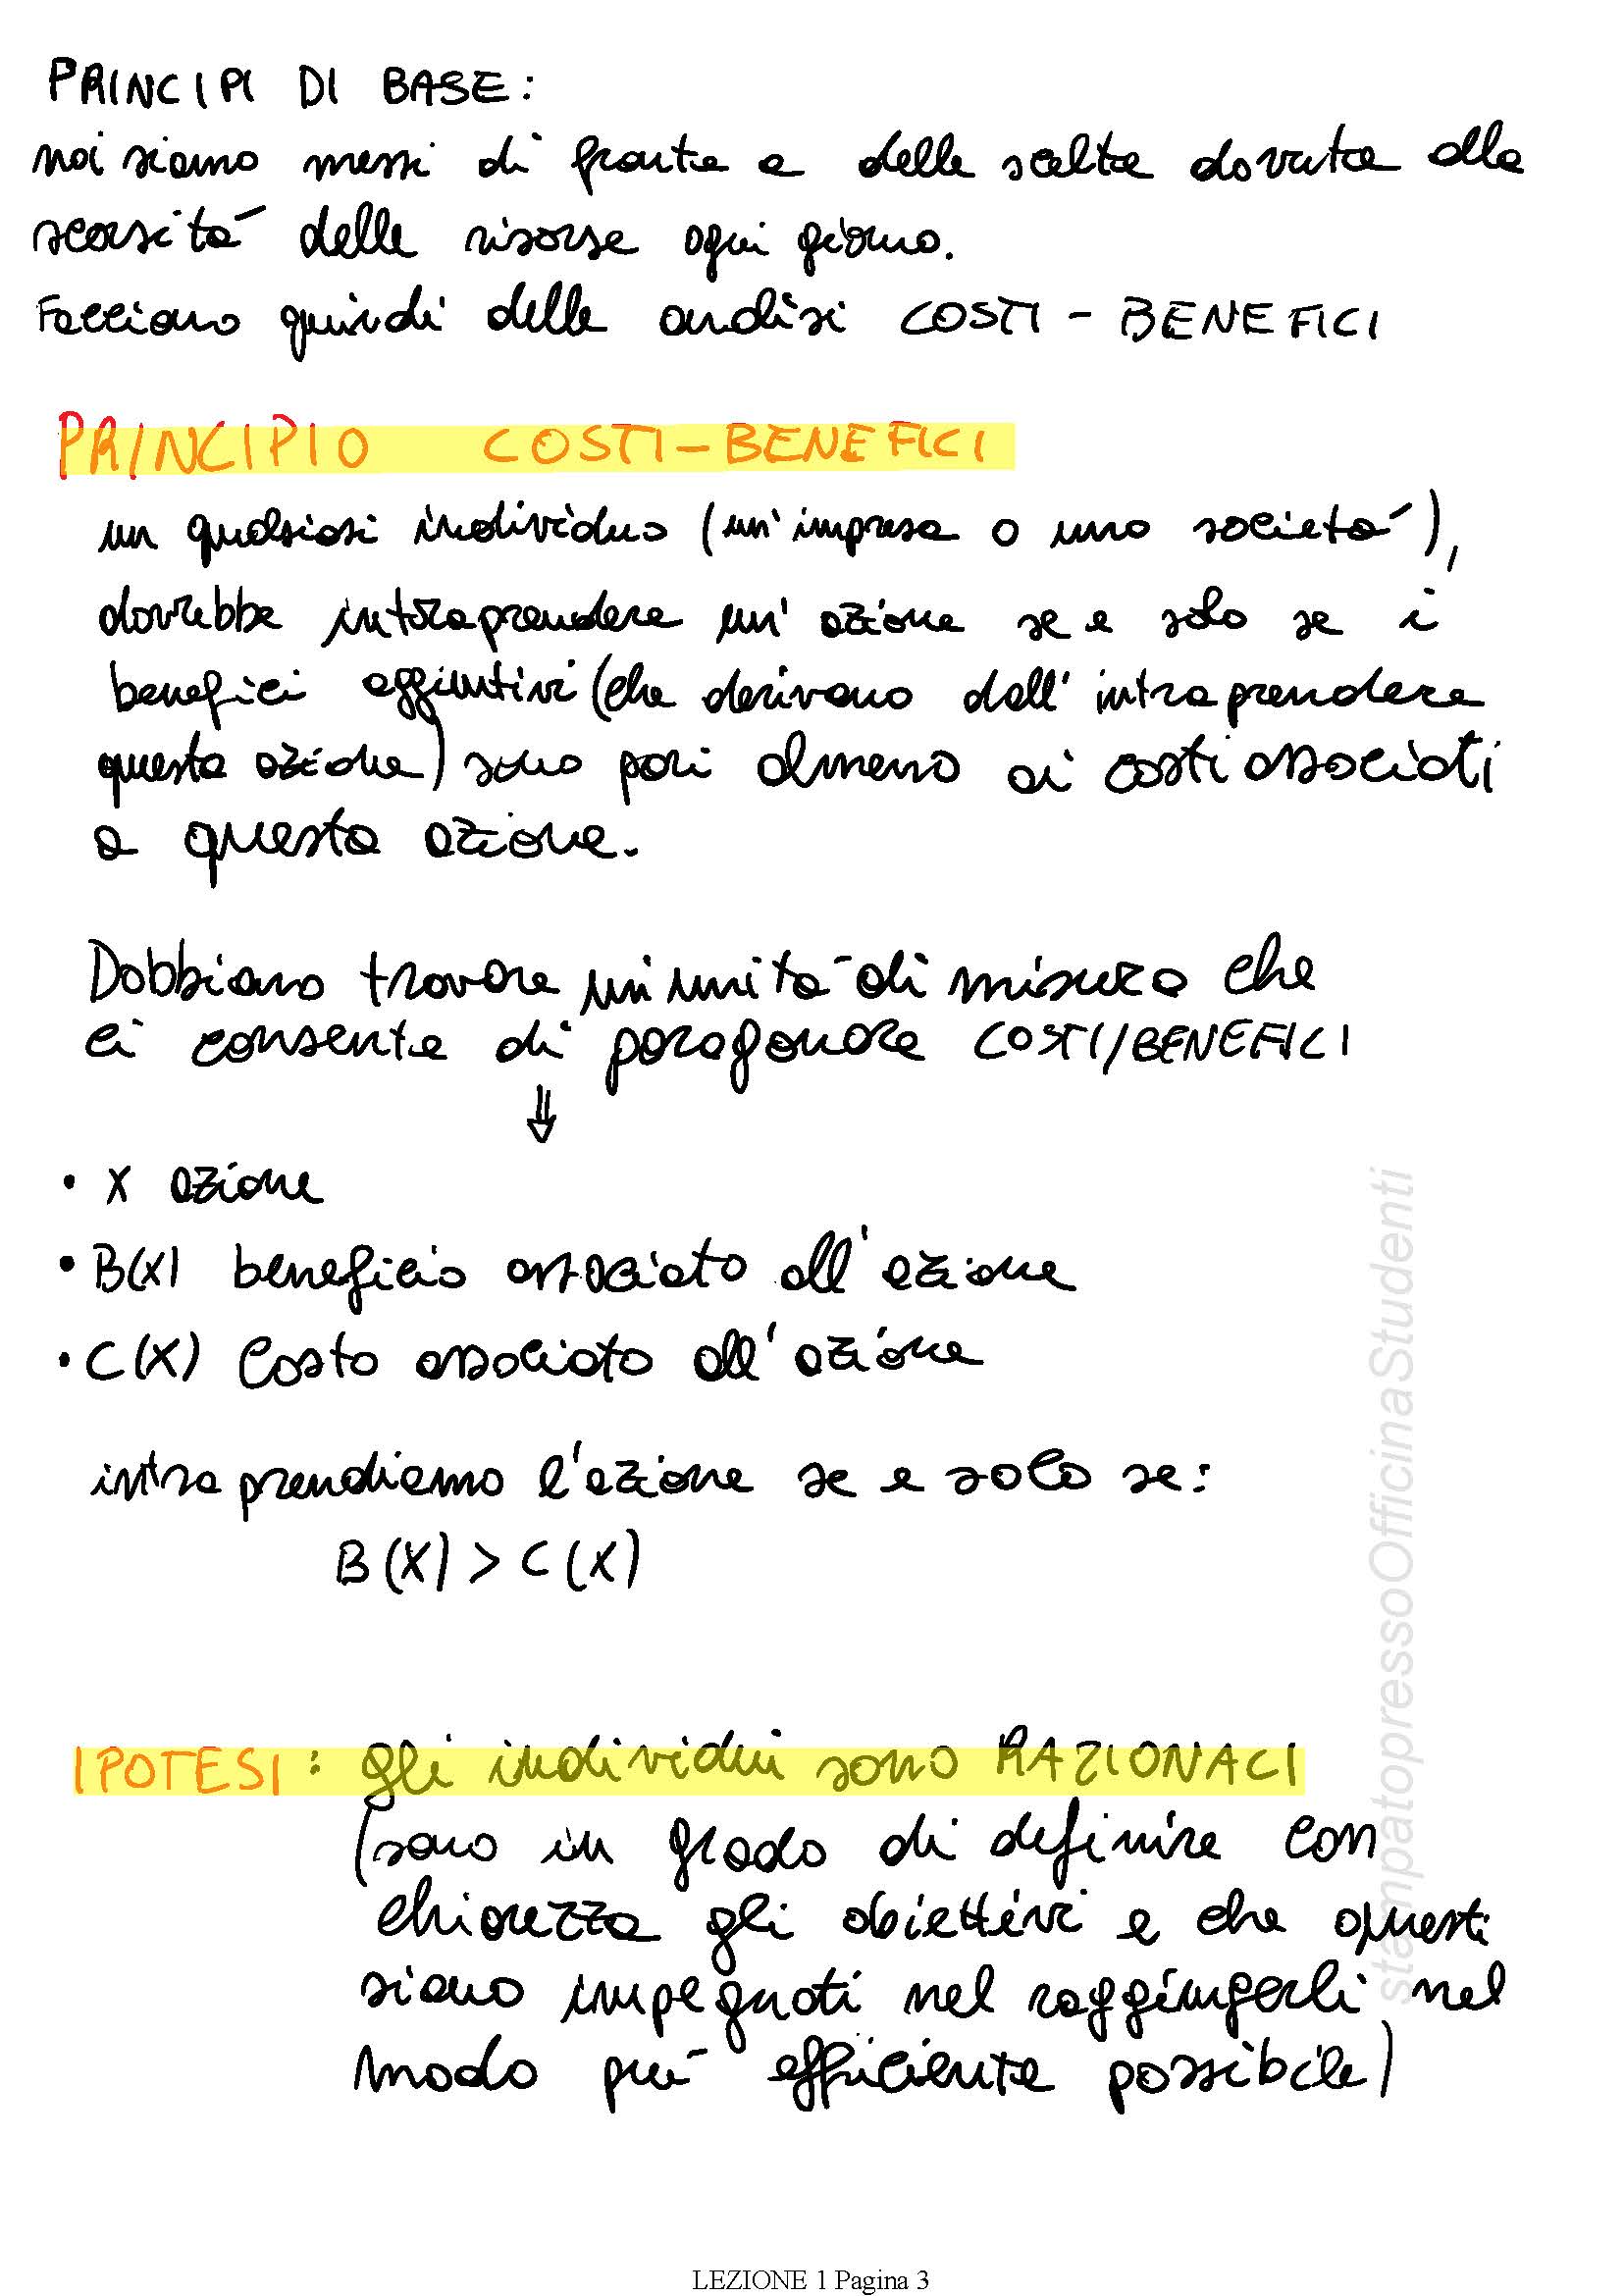 PRINCIPI DI BASE:
noi siamo messi di fronte a delle scelte dovute alla
scarsità delle risorse ogni giorno.
Facciamo quindi delle analisi COSTI - BENEFICI
PRINCIPIO COSTI-BENEFICI
un qualsiasi individuo (un'impresa o una società),
dovrebbe intraprendere un'azione se e solo se i
benefici aggiuntivi (che derivano dall'intraprendere
questa azione) sono pari almeno ai costi associati
a questa azione.
Dobbiamo trovare un'unità di misura che
ci consente di paragonare COSTI/BENEFICI
⇓
• X azione
• B(X) beneficio associato all'azione
• C(X) Costo associato all'azione
intraprendiamo l'azione se e solo se:
B(X) > C(X)
IPOTESI: gli individui sono RAZIONALI
(sono in grado di definire con
chiarezza gli obiettivi e che questi
siano impegnati nel raggiungerli nel
modo più efficiente possibile)
stampatopressoOfficinaStudenti
LEZIONE 1 Pagina 3